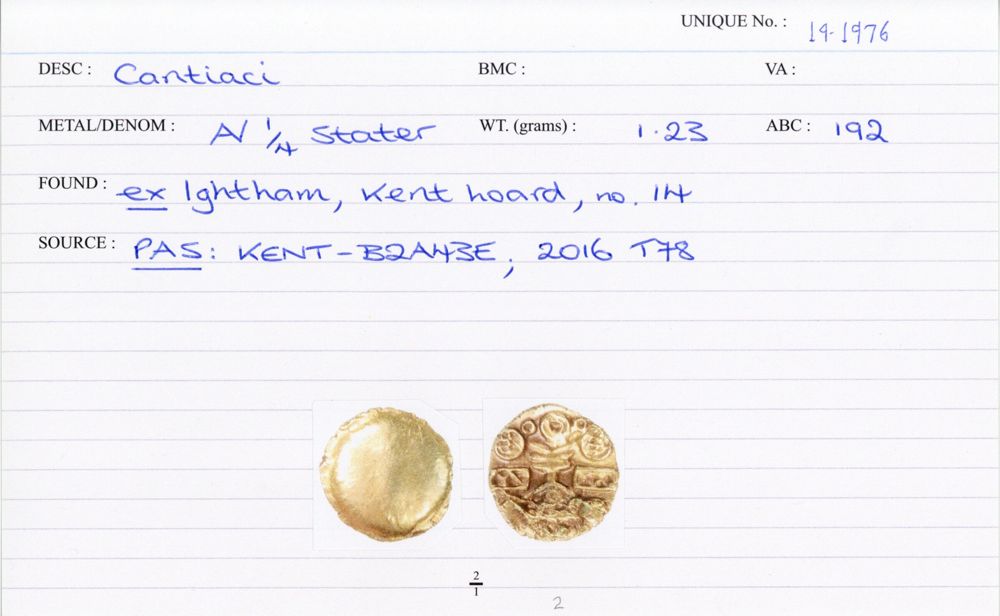 UNIQUE No. : 19-1976
DESC : Cantiaci BMC : VA :
METAL/DENOM : A/ 1/4 Stater WT. (grams) : 1.23 ABC : 192
FOUND : ex Ightham, Kent hoard, no. 14
SOURCE : PAS: KENT-B2A43E; 2016 T78
2/1
2